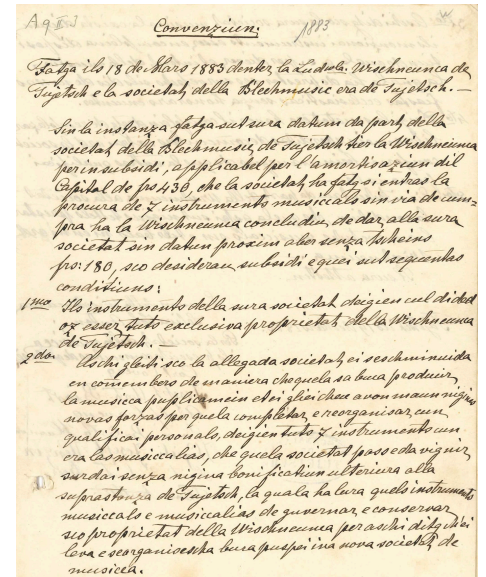 A 9 II 3
Convenziun.
1883
Fatga ils 18 de Mars 1883 denter la Ludvla. Wischneunca de
Tujetsch e la societat, della Blechmusic era de Tujetsch. —
Sin la instanza fatga sut sura datum da part, della
societat della Blechmusic, de Tujetsch tier la Wischneunca
per in subsidi, applicabel per l'amortisaziun dil
Capital de frs 430, che la societat, ha fatg si entras la
procura de 7 instruments musiccals sin via de cum=
pra ha la Wischneunca concludiu, de dar, alla sura
societat sin datum proxim aber senza tscheins
frs: 180, sco desiderau subsidi e quei sut sequentas
conditiuns:
1mo Ils instruments della sura societat deigien cul di d'
oz esser, tuts exclusiva proprietat della Wischneunca
de Tujetsch. —
2do. Aschi gleiti sco la allegada societat, ei se schminuida
en comembers de maniera che quela sa buca producir,
la musicca puplicamein et ei gliei cheu a von maun niginas
novas forzas per quela completar, e reorganisar, cun
qualificai personals, deigien tuts 7 instruments cun
era las musiccalias, che quela societat posseda vignir,
surdai senza nigina bonificatiun ulteriura alla
suprastonza de Tujetsch, la quala ha lura quels instruments
musiccals e musicalias de guvernar, e conservar,
sco proprietat della Wischneunca per aschi ditg ch'ei
leva e seorganisescha buca puspei ina nova societat, de
musicca.